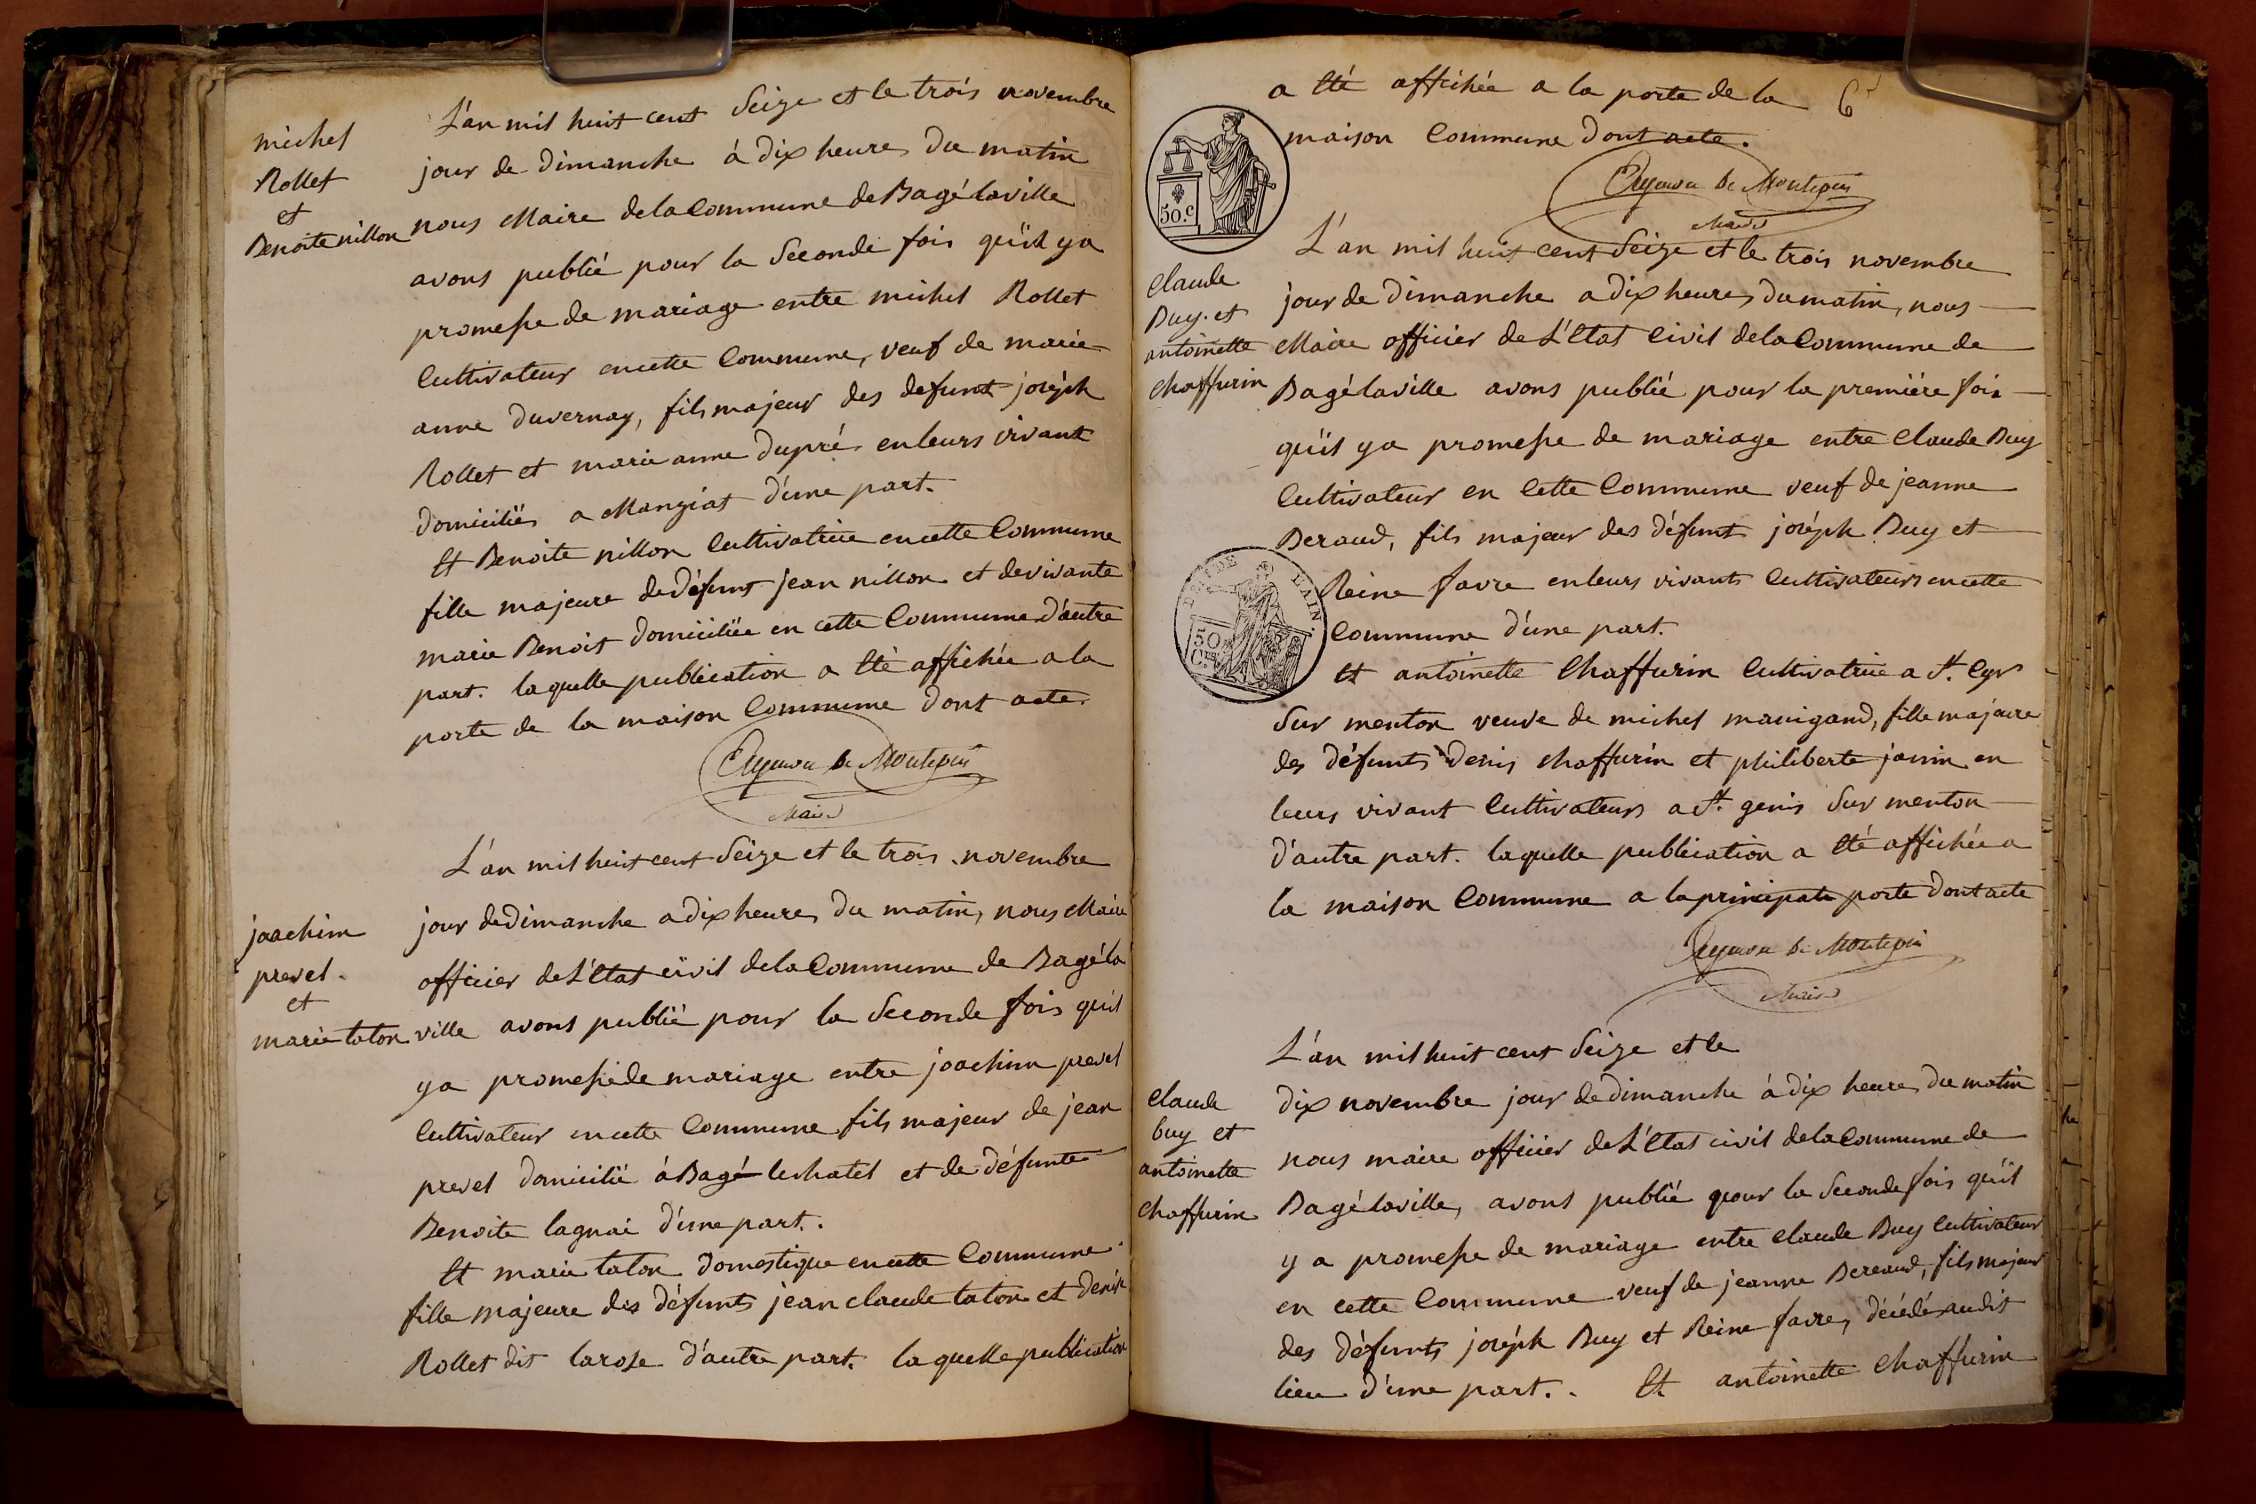 michel
Rollet
et
Benoite nillon
L'an mil huit cent Seize et le trois novembre
jour de dimanche à dix heures du matin
nous Maire de la Commune de Bagé laville
avons publié pour la Seconde fois qu'il y a
promesse de mariage entre michel Rollet
Cultivateur en cette Commune, veuf de marie
anne Duvernay, fils majeur des defunt joséph
Rollet et marie anne Dupré en leurs vivant
domiciliés a Mangiat d'une part.
Et Benoite nillon Cultivatrice en cette Commune
fille majeure de défunt jean nillon et de vivante
marie Benoit domiciliée en cette Commune d'autre
part. la quelle publication a été affichée a la
porte de la maison Commune dont acte.
de Montepin
Maire
joachim
prevel
et
marie taton
L'an mil huit cent Seize et le trois novembre
jour de dimanche a dix heures du matin, nous Maire
officier de L'état civil de la Commune de Bagé la
ville avons publié pour la Seconde fois qu'il
y a promesse de mariage entre joachim prevel
Cultivateur en cette Commune fils majeur de jean
prevel domicilié à Bagé lechatel et de défunte
Benoite lagnai d'une part.
Et marie taton domestique en cette Commune
fille majeure des défunts jean claude taton et denise
Rollet dit larose d'autre part. la quelle publication
6
a été affichée a la porte de la
maison Commune dont acte.
de Montepin
Maire
50.c
Claude
Buy et
antoinette
Chaffurin
L'an mil huit cent Seize et le trois novembre
jour de dimanche a dix heures du matin, nous
Maire officier de L'état civil de la Commune de
Bagé laville avons publié pour la premiére fois
qu'il y a promesse de mariage entre Claude Buy
Cultivateur en Cette Commune veuf de jeanne
Beraud, fils majeur des défunt joséph Buy et
Reine favre en leurs vivants Cultivateurs en cette
Commune d'une part.
50
L'AIN.
Et antoinette Chaffurin Cultivatrice a St. Cyr
Sur menton veuve de michel manigand, fille majeure
des défunts Denis chaffurin et philiberte janin en
leurs vivant Cultivateurs a St. genis Sur menton
d'autre part. la quelle publication a été affichée a
la maison Commune a la principale porte dont acte
de Montepin
Maire
claude
buy et
antoinette
Chaffurin
L'an mil huit cent Seize et le
dix novembre jour de dimanche à dix heures du matin
nous maire officier de L'état civil de la Commune de
Bagé laville, avons publié pour la Seconde fois qu'il
y a promesse de mariage entre claude Buy Cultivateur
en cette Commune veuf de jeanne Bereaud, fils majeur
des défunts joséph Buy et Reine favre, décédés audit
lieu d'une part. Et antoinette Chaffurin